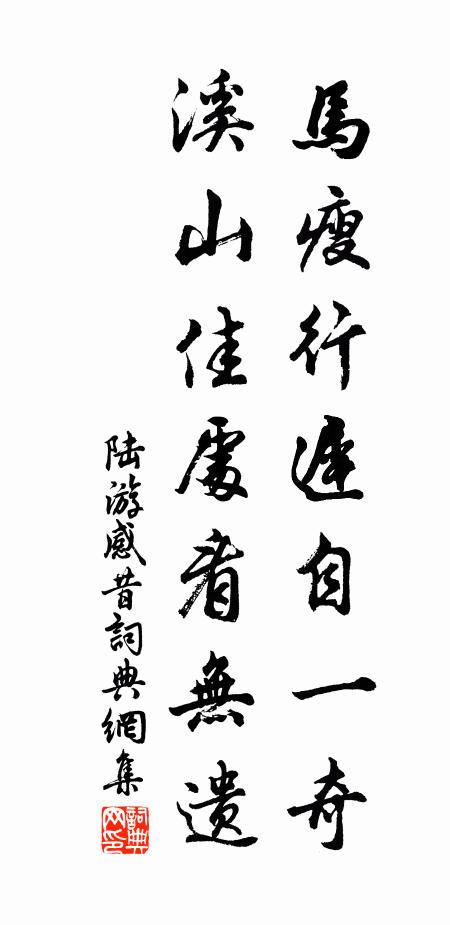 馬瘦行遲自一奇
溪山佳處看無遺
陆游感昔詞典網集
詞典網印